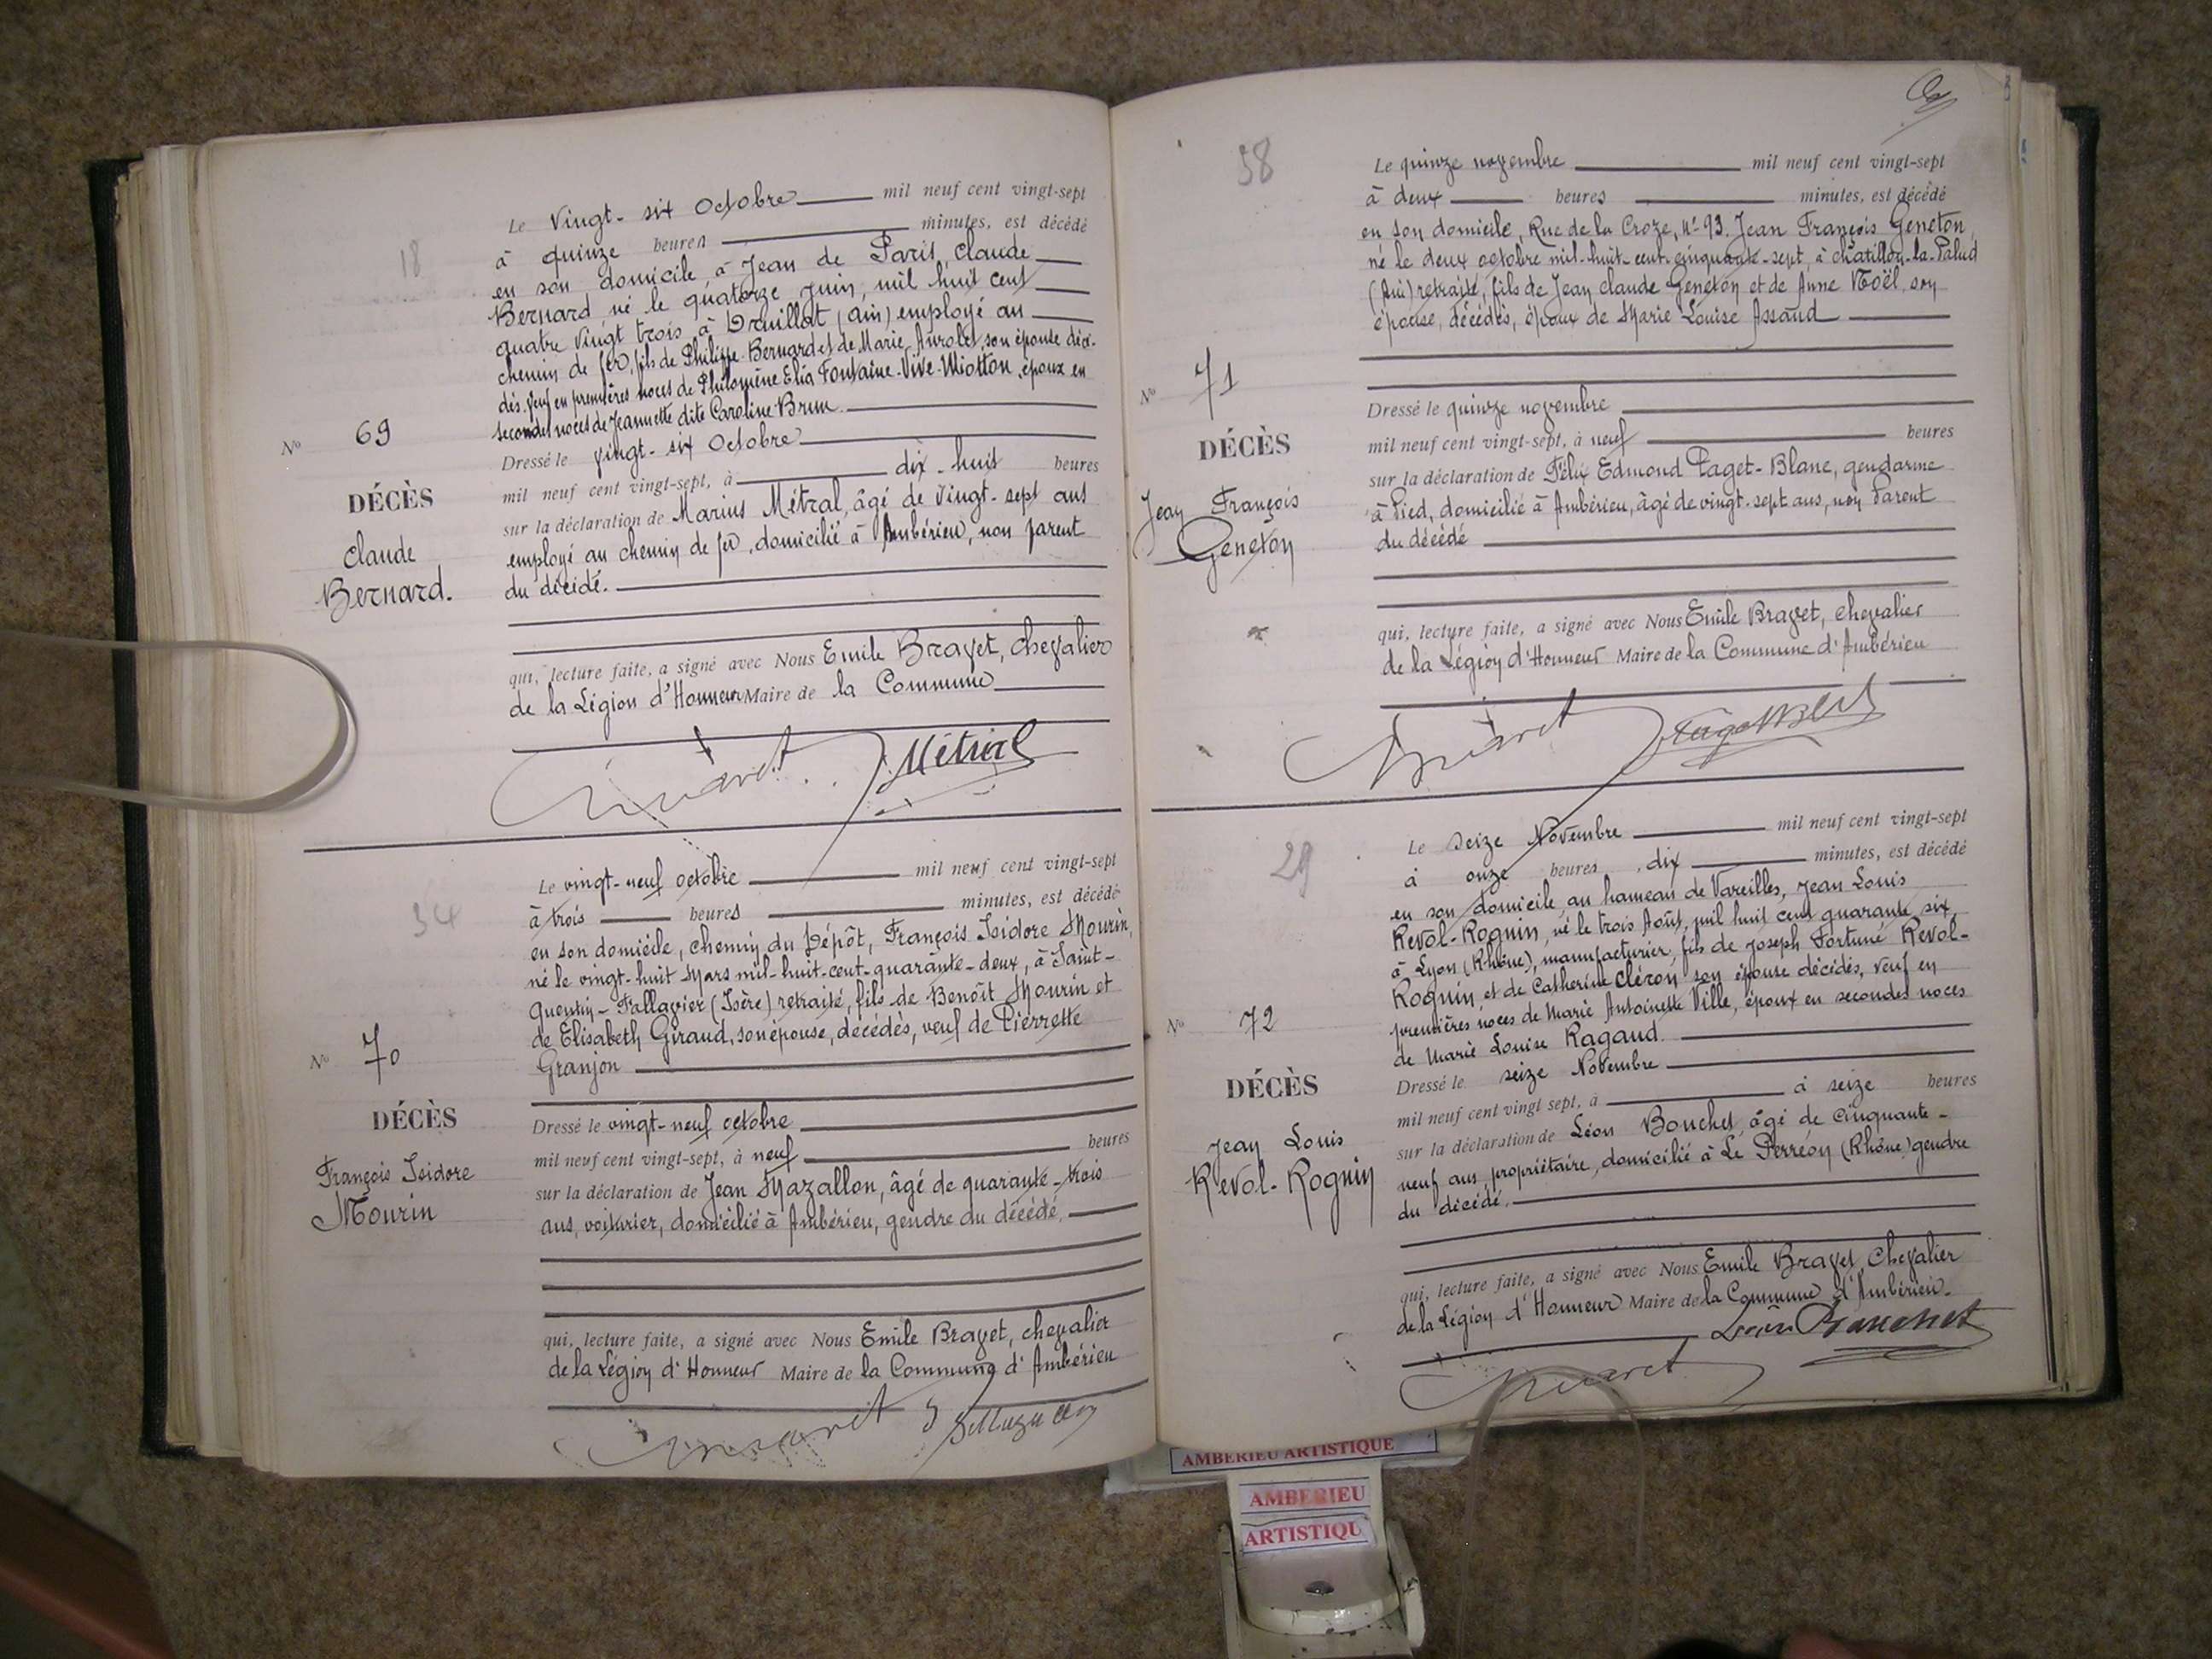 18
Le Vingt-six Octobre mil neuf cent vingt-sept
à quinze heures minutes, est décédé
en son domicile à Jean de Paris, Claude
Bernard né le quatorze juin, mil huit cent
quatre vingt trois à Druillat (Ain) employé au
chemin de fer, fils de Philippe Bernard et de Marie Aurolet, son épouse décé-
dés, veuf en premières noces de Philomène Elia Fontaine-Vive-Miotton, époux en
secondes noces de Jeannette dite Caroline Brun
No 69
DÉCÈS
Claude
Bernard.
Dressé le vingt-six Octobre
mil neuf cent vingt-sept, à dix-huit heures
sur la déclaration de Marius Métral, âgé de vingt-sept ans
employé au chemin de fer, domicilié à Ambérieu, non parent
du décédé.
qui, lecture faite, a signé avec Nous Emile Bravet, chevalier
de la Légion d'Honneur Maire de la Commune
Métral
34
Le vingt-neuf octobre mil neuf cent vingt-sept
à trois heures minutes, est décédé
en son domicile, chemin du Dépôt, François Isidore Mourin,
né le vingt-huit Mars mil-huit-cent-quarante-deux, à Saint-
Quentin-Fallavier (Isère) retraité, fils de Benoît Mourin et
de Elisabeth Giraud, son épouse, décédés, veuf de Pierrette
Granjon
No 70
DÉCÈS
François Isidore
Mourin
Dressé le vingt-neuf octobre
mil neuf cent vingt-sept, à neuf heures
sur la déclaration de Jean Mazallon, âgé de quarante-trois
ans, voiturier, domicilié à Ambérieu, gendre du décédé,
qui, lecture faite, a signé avec Nous Emile Bravet, chevalier
de la Légion d'Honneur Maire de la Commune d'Ambérieu
58
Le quinze novembre mil neuf cent vingt-sept
à deux heures minutes, est décédé
en son domicile, Rue de la Croze, N° 93. Jean François Geneton,
né le deux octobre mil-huit-cent-cinquante-sept, à Châtillon-la-Palud
(Ain) retraité, fils de Jean Claude Geneton et de Anne Noël, son
épouse, décédés, époux de Marie Louise Assaud
No 71
DÉCÈS
Jean François
Geneton
Dressé le quinze novembre
mil neuf cent vingt-sept, à neuf heures
sur la déclaration de Félix Edmond Paget-Blanc, gendarme
à Pied, domicilié à Ambérieu, âgé de vingt-sept ans, non Parent
du décédé
qui, lecture faite, a signé avec Nous Emile Bravet, chevalier
de la Légion d'Honneur Maire de la Commune d'Ambérieu
29
Le seize Novembre mil neuf cent vingt-sept
à onze heures, dix minutes, est décédé
en son domicile, au hameau de Vareilles, Jean Louis
Revol-Roguin, né le trois Août, mil huit cent quarante six,
à Lyon (Rhône), manufacturier, fils de Joseph Fortuné Revol-
Roguin, et de Catherine Cléron son épouse décédés, veuf en
premières noces de Marie Antoinette Ville, époux en secondes noces
de Marie Louise Ragaud.
No 72
DÉCÈS
Jean Louis
Revol-Roguin
Dressé le seize Novembre
mil neuf cent vingt sept, à à seize heures
sur la déclaration de Léon Bouchet, âgé de cinquante-
neuf ans propriétaire, domicilié à Le Perréon (Rhône) gendre
du décédé.
qui, lecture faite, a signé avec Nous Emile Bravet, Chevalier
de la Légion d'Honneur Maire de la Commune d'Ambérieu.
Léon Bouchet
AMBERIEU ARTISTIQUE
AMBERIEU
ARTISTIQU